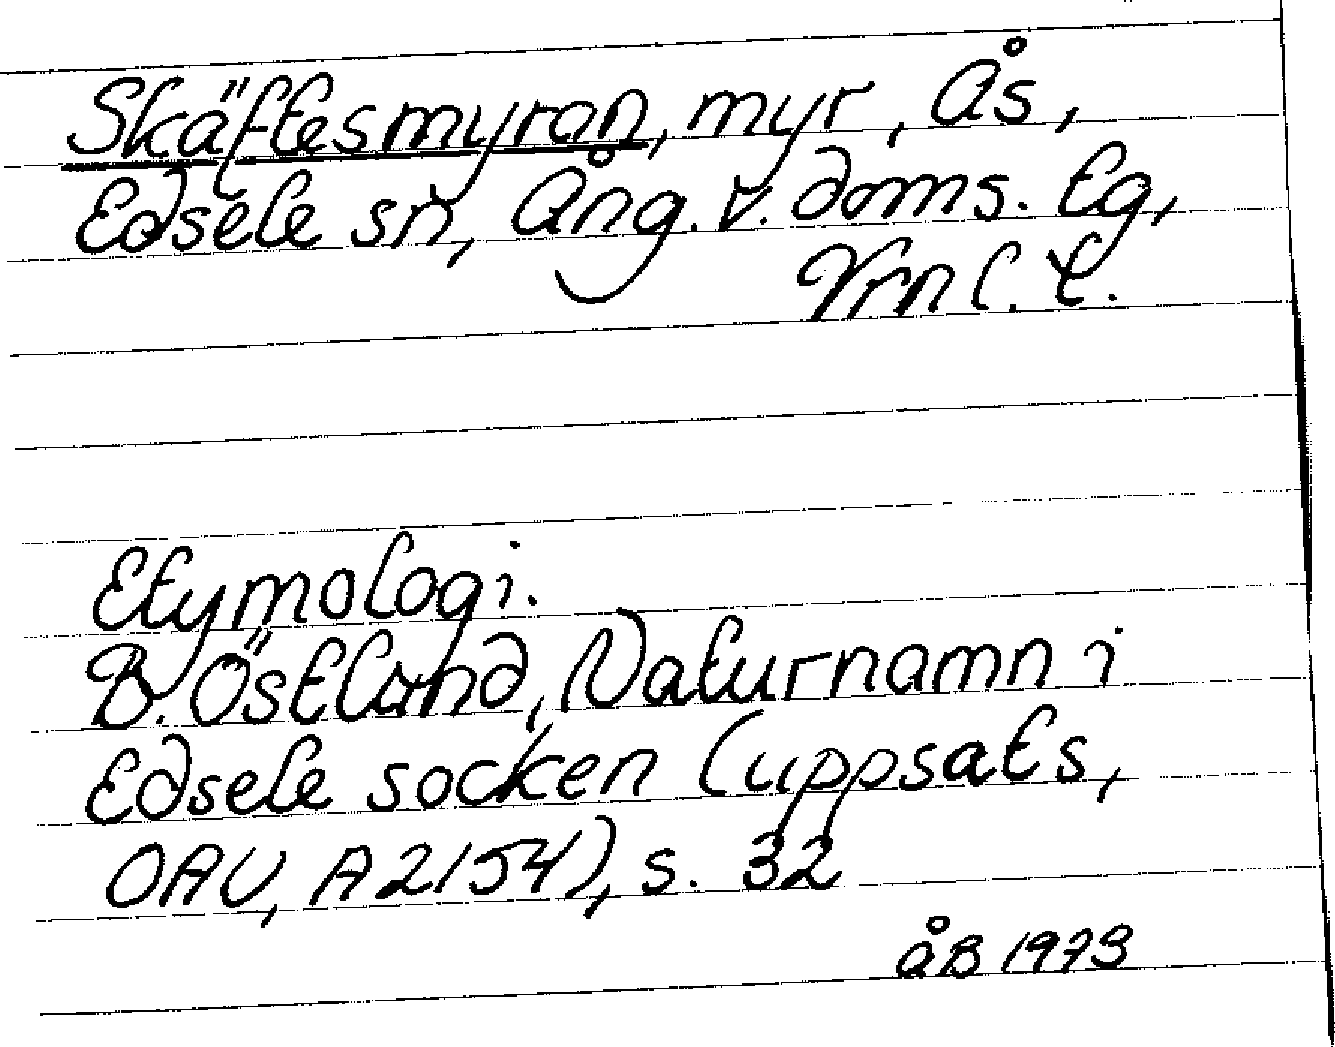 Skäftesmyran, myr, Ås,
Edsele sn, Ång. v. doms. tg,
Vrnl. l.
Etymologi.
B. Östlund, Naturnamn i
Edsele socken (uppsats,
OAU, A 2154), s. 32
åB 1973